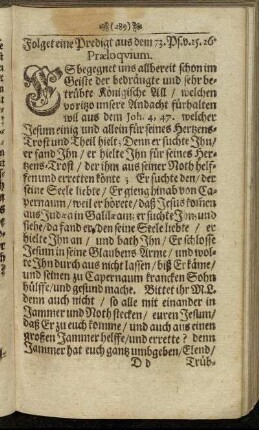 (289)
Folget eine Predigt aus dem 73. Ps. v. 25. 26.
Præloqvium.
ES begegnet uns allbereit schon im
Geiste der bedrängte und sehr be-
trübte Königische All / welchen
voritzo unsere Andacht fürhalten
wil aus dem Joh. 4, 47. welcher
Jesum einig und allein für seines Hertzens-
Trost und Theil hielt; Denn er suchte Ihn/
er fand Ihn / er hielte Ihn für seines Her-
tzens-Trost / der ihm aus seiner Noth helf-
fen und erretten könte ; Er suchte den / den
seine Seele liebte / Er gieng hinab von Ca-
pernaum / weil er hörete / daß Jesus komen
aus Judæa in Galilæam: er suchte Ihn und
siehe / da fand er den seine Seele liebte / er
hielte Ihn an / und bath Ihn / Er schlosse
Jesum in seine Glaubens Arme / und wol-
te Ihn durchaus nicht lassen / biß Er käme /
und seinen zu Capernaum krancken Sohn
hülffe / und gesund mache. Bittet ihr M. L.
denn auch nicht / so alle mit einander in
Jammer und Noth stecken / euren Jesum /
daß Er zu euch komme / und auch aus einen
großen Jammer helffe / und errette ? denn
Jammer hat euch gantz umbgeben / Elend /
D d Trüb-